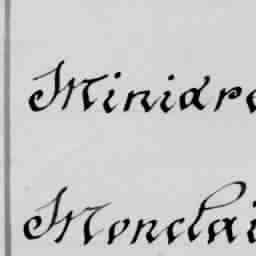 Minidre
Monclai